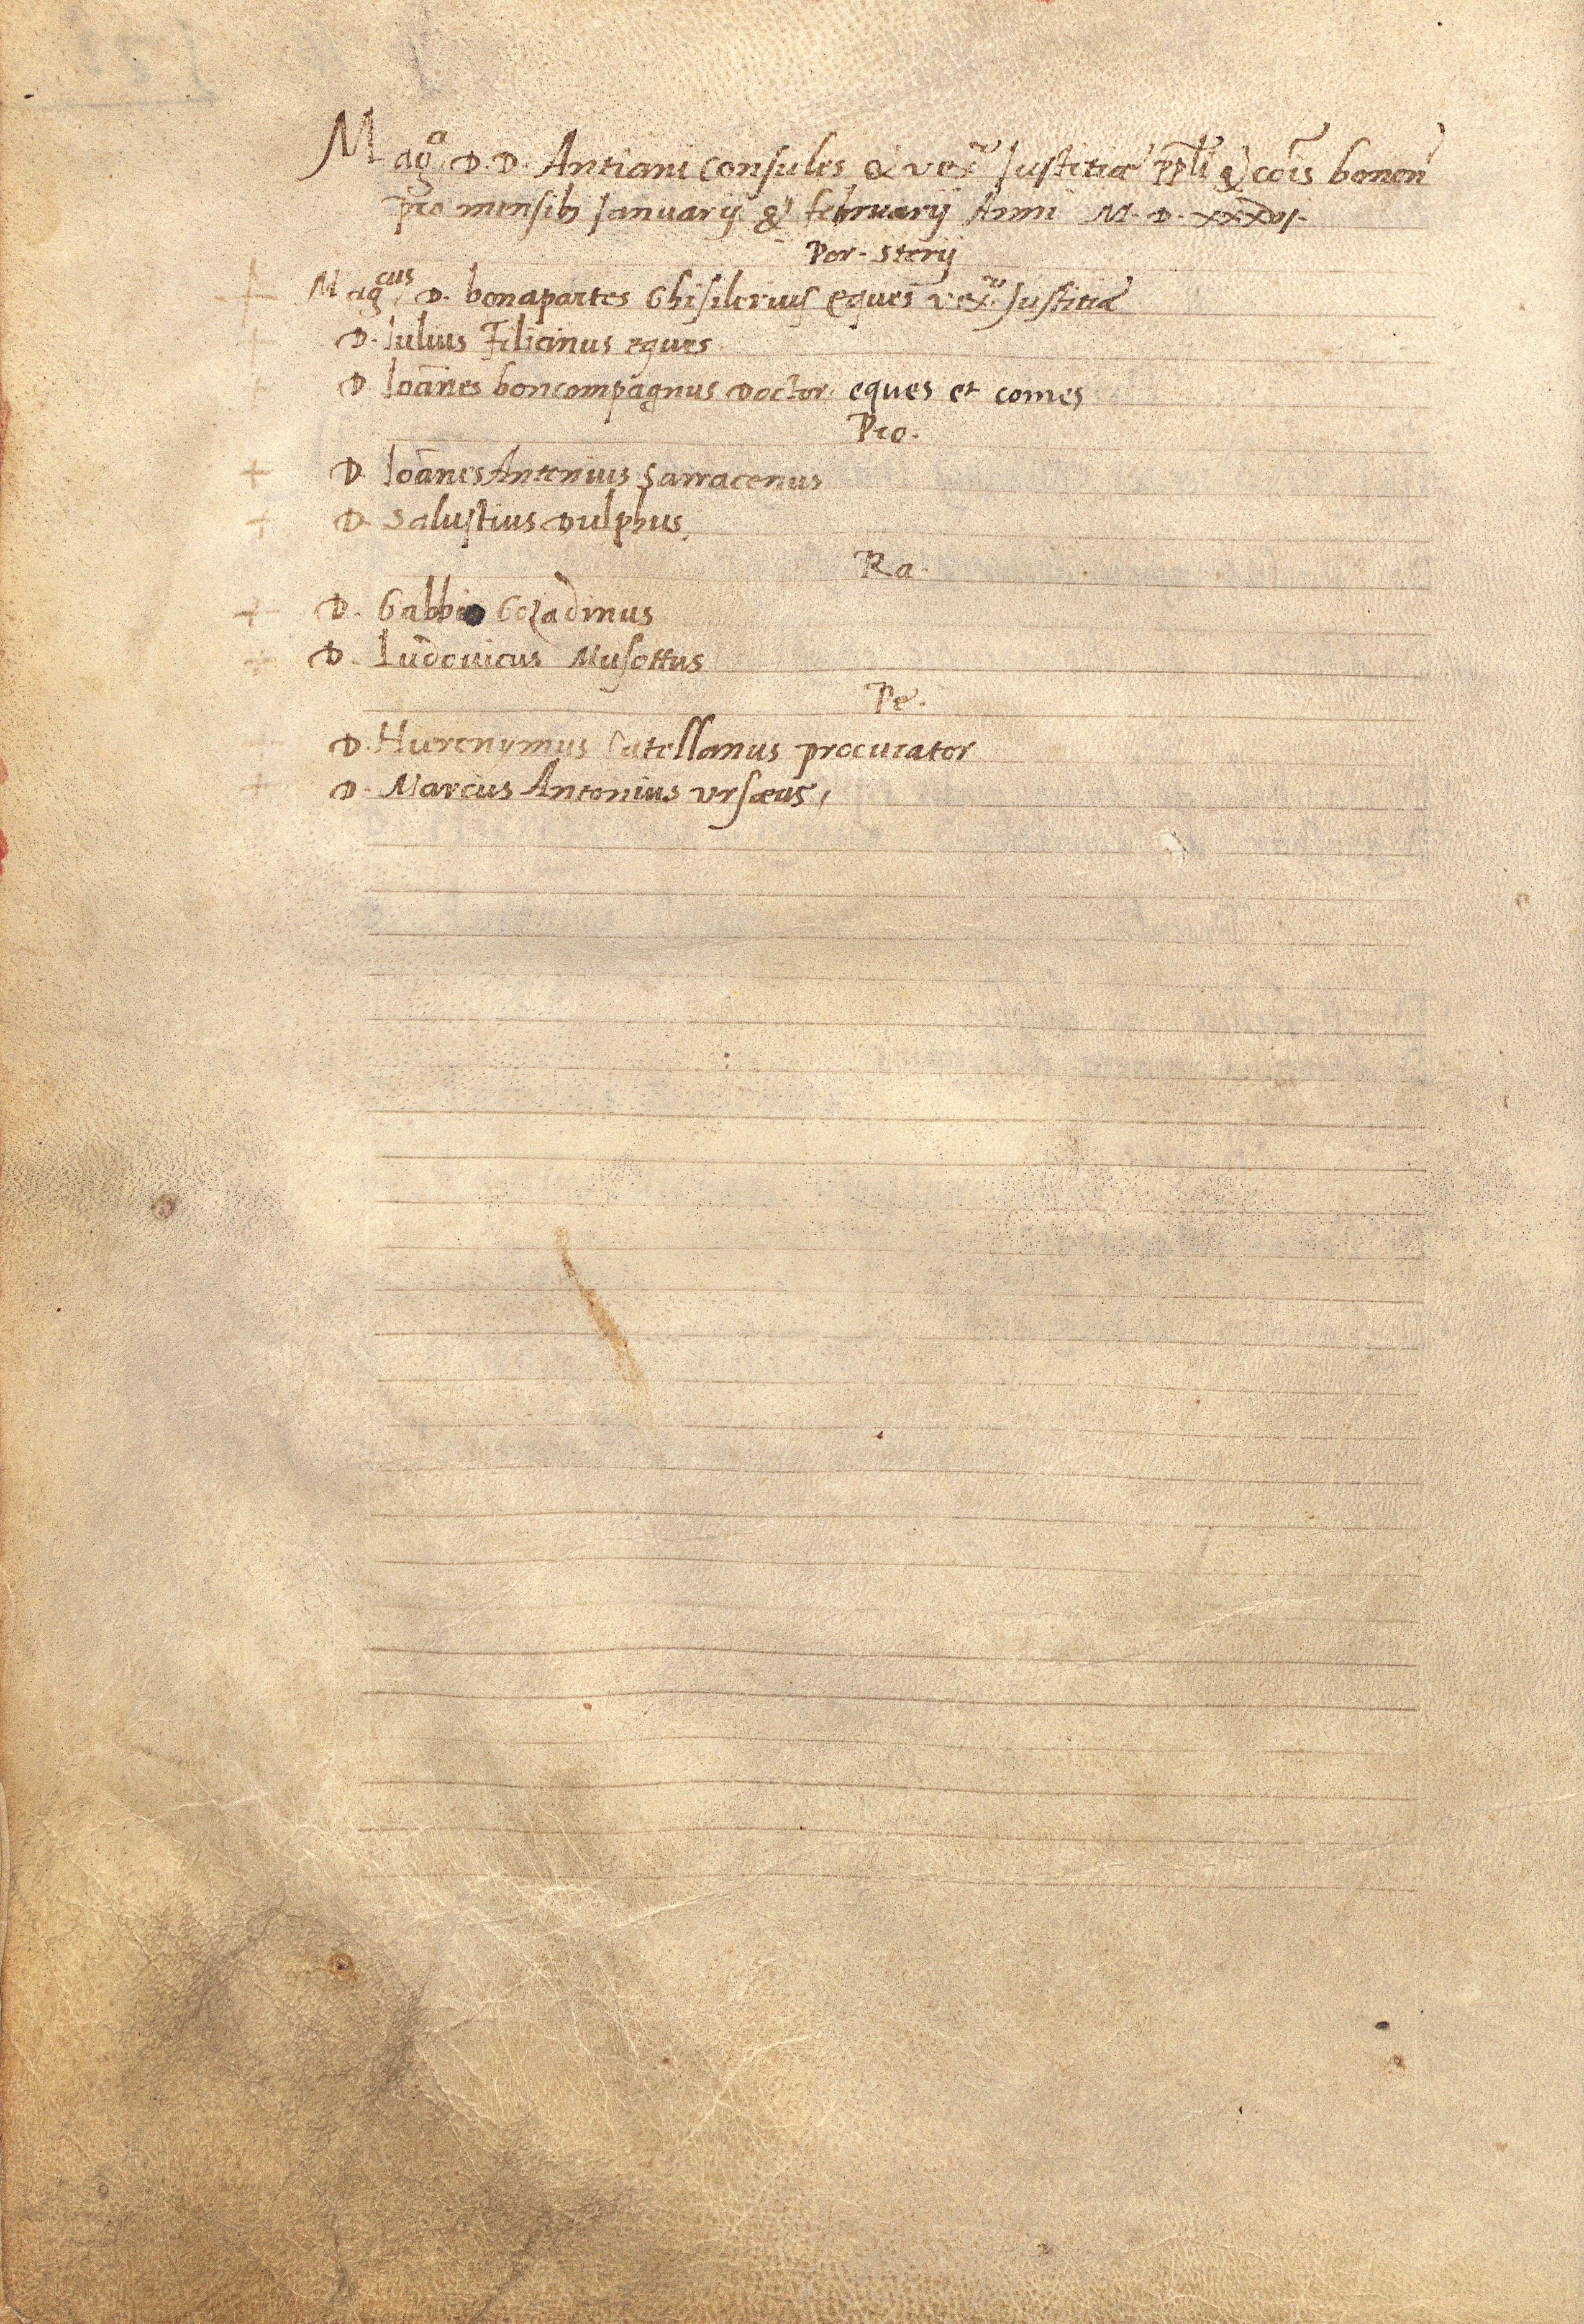 Mag.ci D. D. Antiani consules & vexr. Justitiæ ppli & cõis bonon
pro mensib Januarij & februarij Anni M. D. xxxvi.
Por. Sterij
Mag.cus D. bonapartes Ghisilerius eques vexr. Justitiæ
D. Iulius Filicinus eques
D. Ioãnes boncompagnus Doctor. eques et comes
Pro.
+ D. Ioãnes Antonius Sarracenus
+ D. Salustius Dulphus.
Ra.
+ D. Gabbio Gozadinus
+ D. Ludouicus Musottus
Pe.
D. Hieronymus Catellanus procurator
+ D. Marcus Antonius Ursæus,